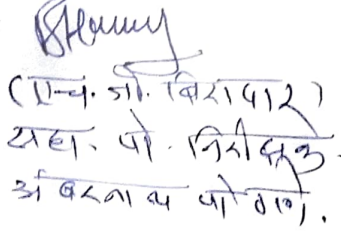 (एच. जी. बिरादार)
सहा. पो. निरीक्षक
अंबरनाथ पो ठाणे.